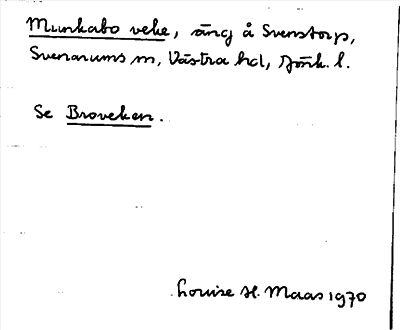 Munkabo veke, äng å Svenstorp,
Svenarums sn, Västra hd, Jönk. l.
Se Broveken.
Louise H. Maas 1970